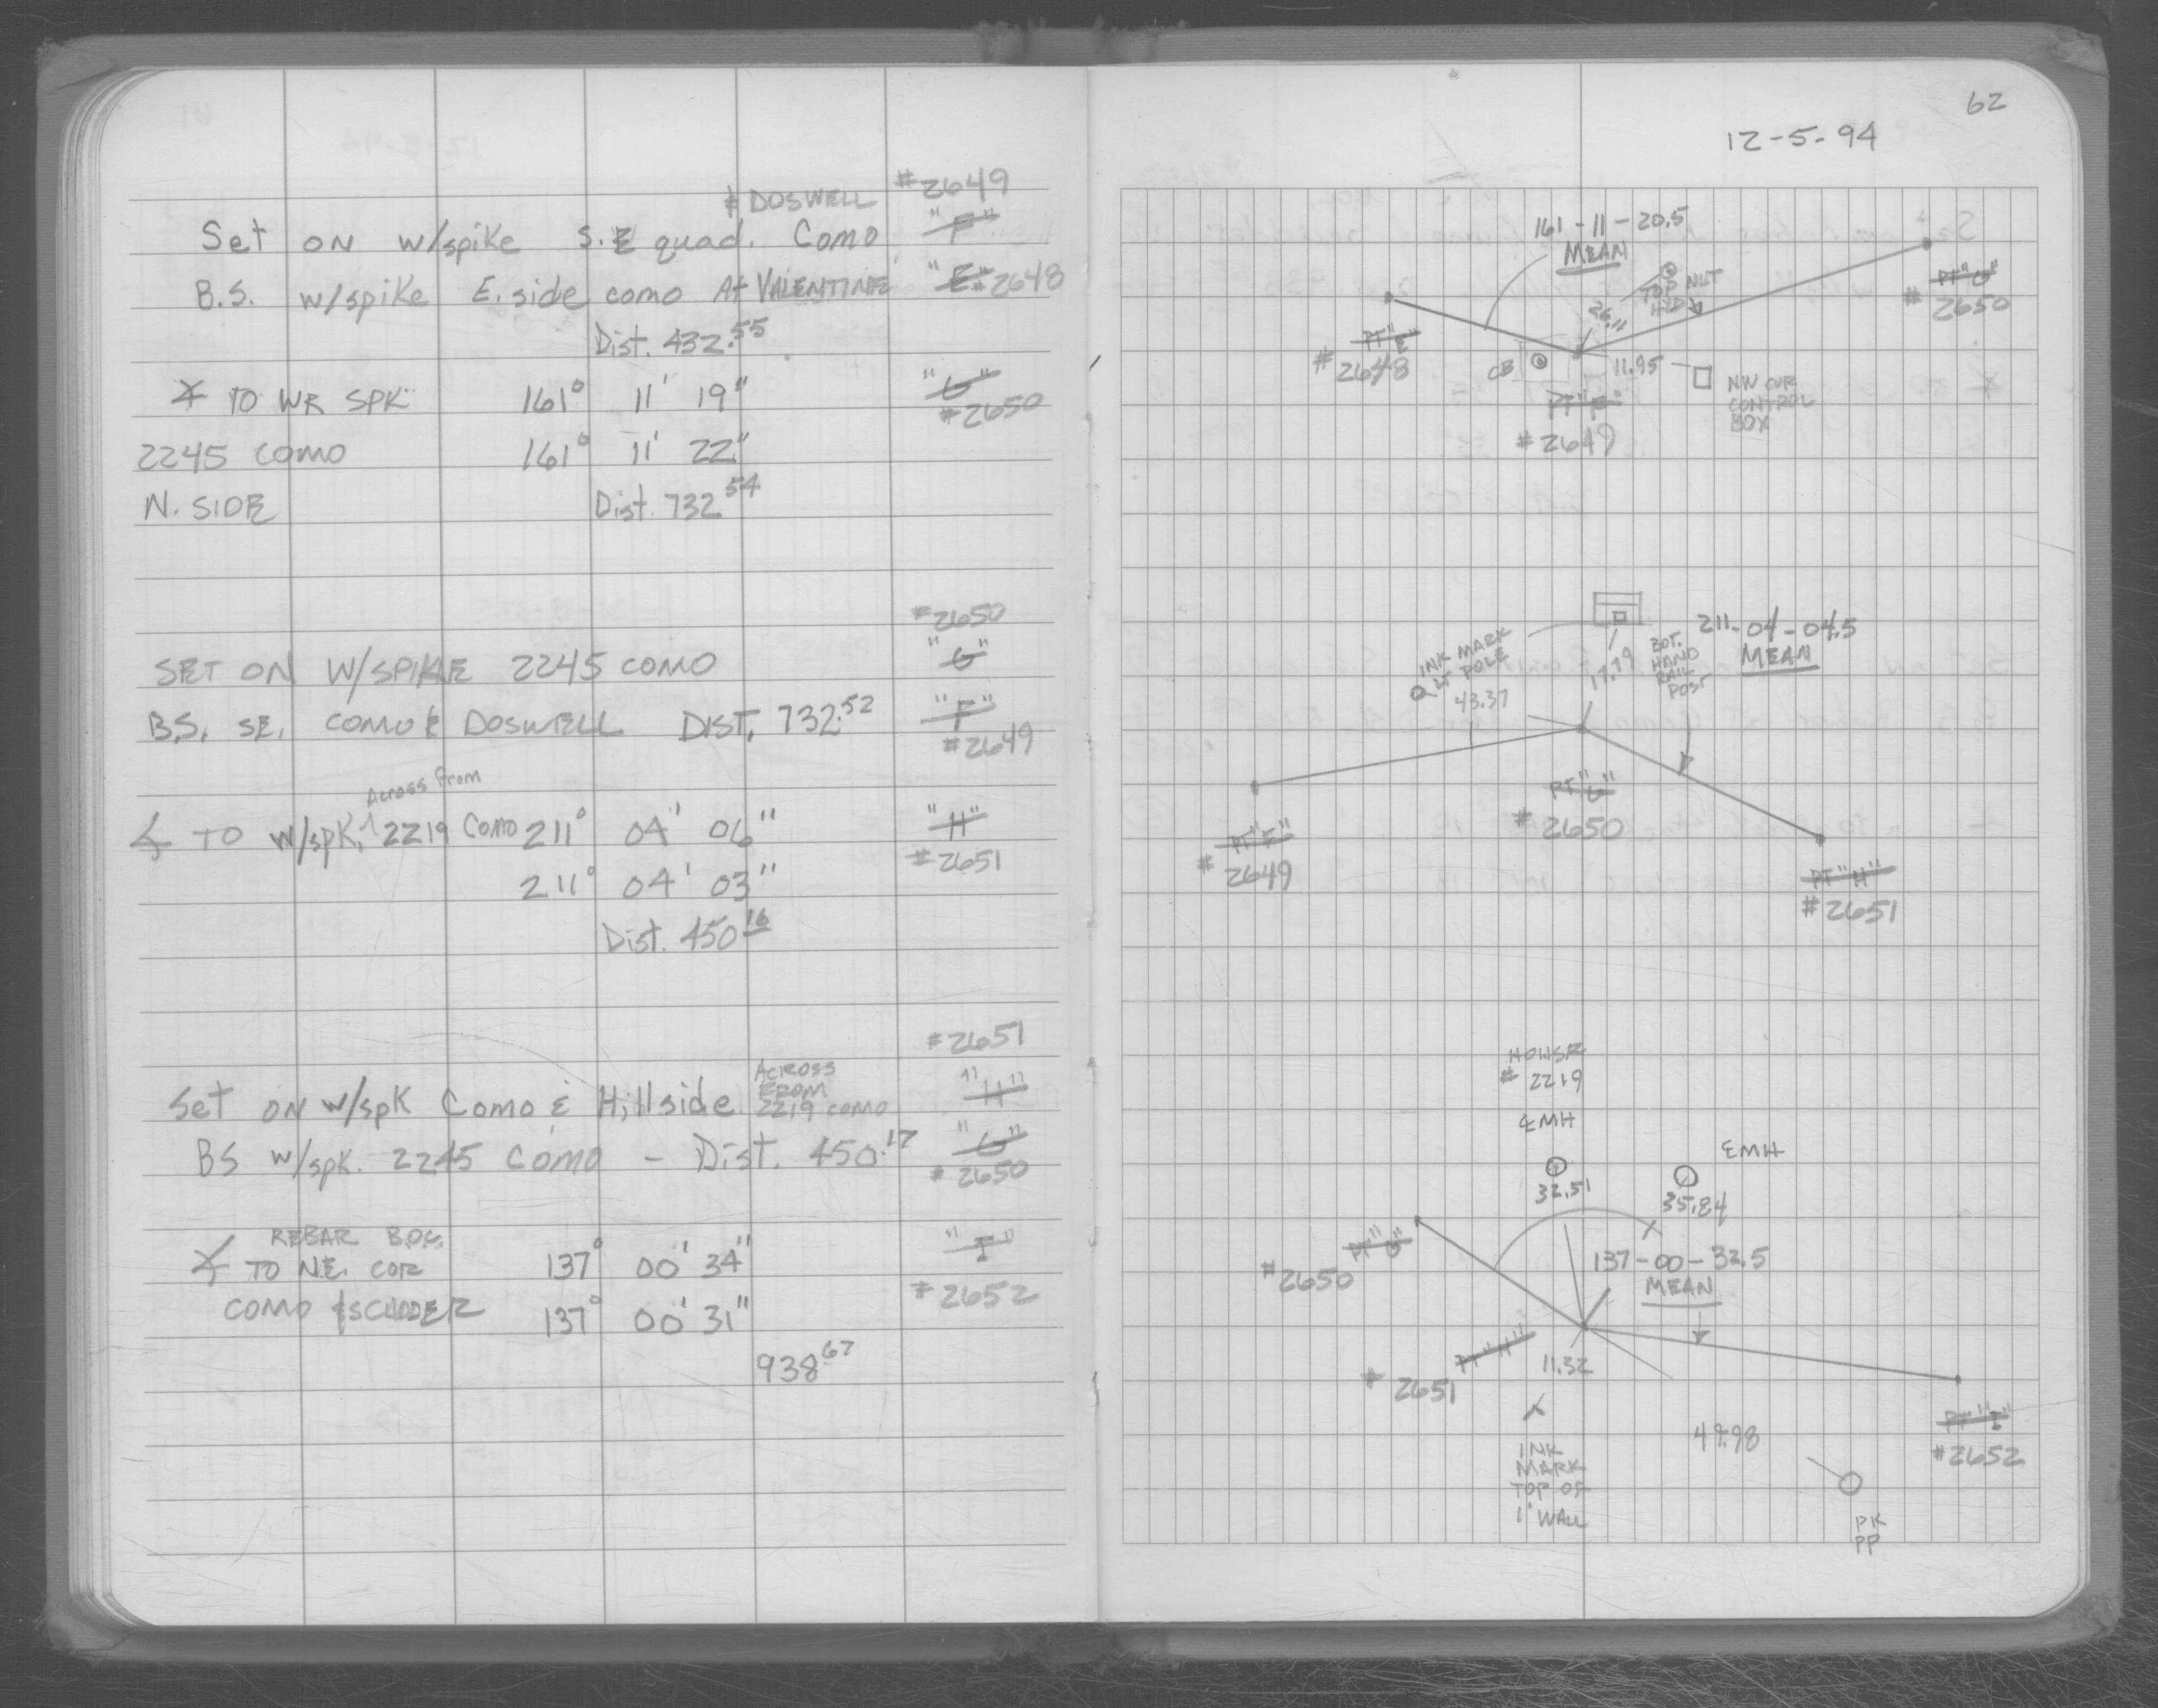 & DOSWELL #2649
Set ON w/spike S.E quad. Como "F"
B.S. w/spike E. side como At VALENTINE "E" #2648
Dist. 432.55
∡ TO WR SPK 161° 11' 19" "G"
#2650
2245 COMO 161° 11' 22"
N. SIDE Dist. 732 54
#2650
SET ON W/SPIKE 2245 COMO "G"
B.S. SE. COMO & DOSWELL DIST. 732.52 "F"
#2649
Across from
∡ TO w/spk. 2219 Como 211° 04' 06" "H"
#2651
211° 04' 03"
Dist. 450 16
#2651
Set ON w/spk Como & Hillside ACROSS FROM 2219 COMO "H"
BS w/spk. 2245 Como - Dist. 450.17 "G"
#2650
REBAR B.O.C.
∡ TO N.E. COR 137° 00' 34" "I"
#2652
COMO & SCUDDER 137° 00' 31"
938.67
62
12-5-94
161-11-20.5
MEAN
TOP NUT
HYD
PT "G"
# 2650
PT "E"
# 2648
CB
11.95
NW COR
CONTROL
BOX
PT "F"
#2649
211-04-04.5
MEAN
INK MARK
LT POLE
43.37
17.79
BOT.
HAND
RAIL
POST
PT "G"
# 2650
PT "F"
# 2649
PT "H"
#2651
HOUSE
# 2219
℄MH
32.51
℄MH
35.84
PT "G"
#2650
137-00-32.5
MEAN
PT "H"
# 2651
11.32
INK
MARK
TOP OF
1' WALL
PT "I"
#2652
PK
PP